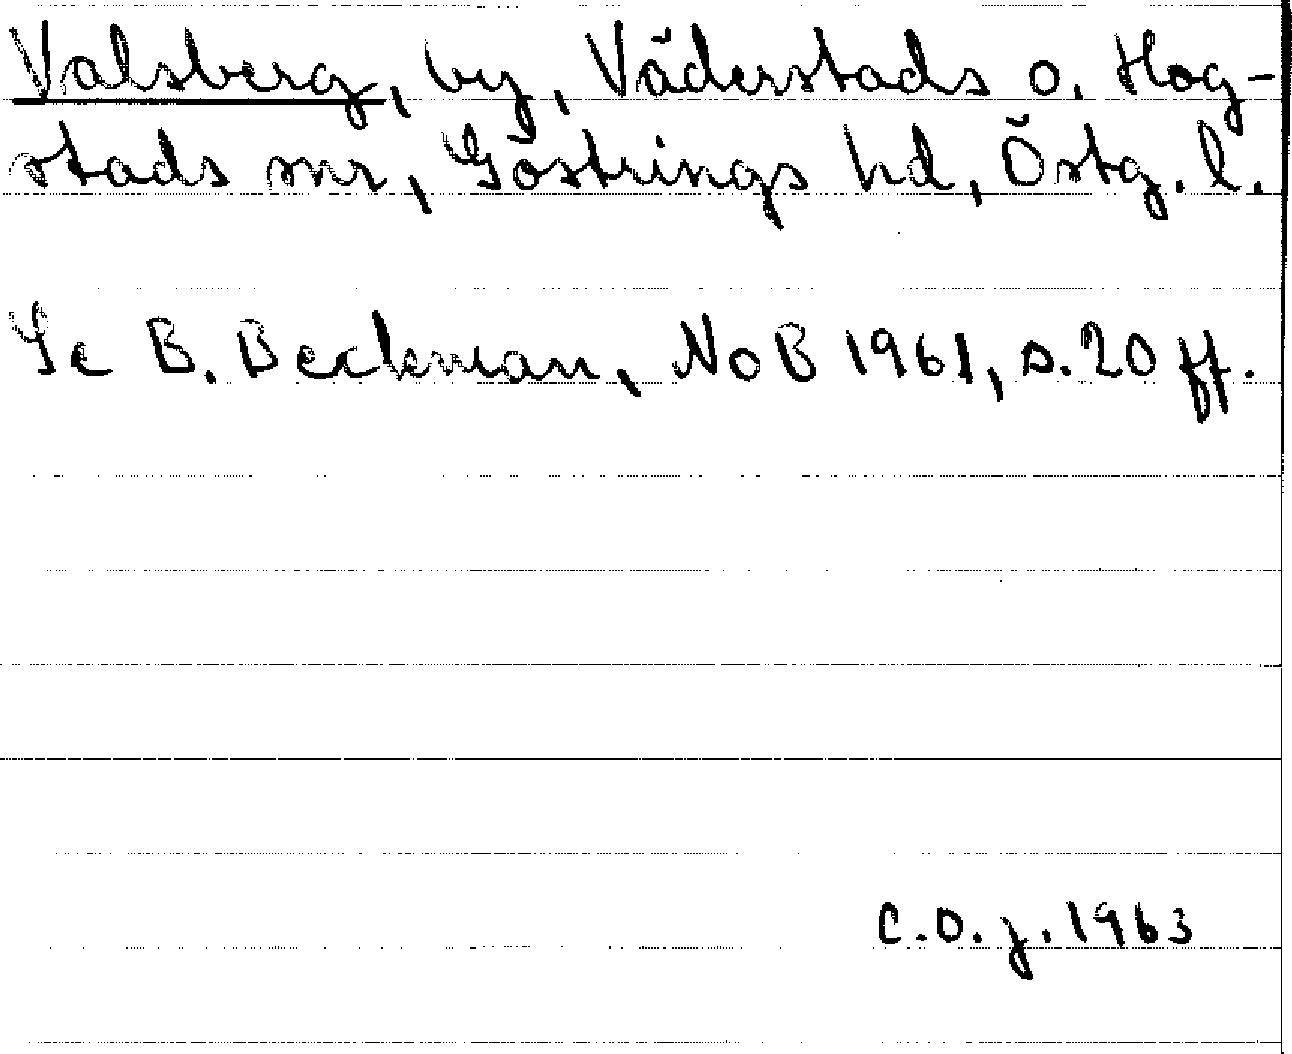 Valsberg, by, Väderstads o. Hog-
stads snr, Göstrings hd, Östg. l.
Se B. Beckman, NoB 1961, s. 20 ff.
C.O.j. 1963